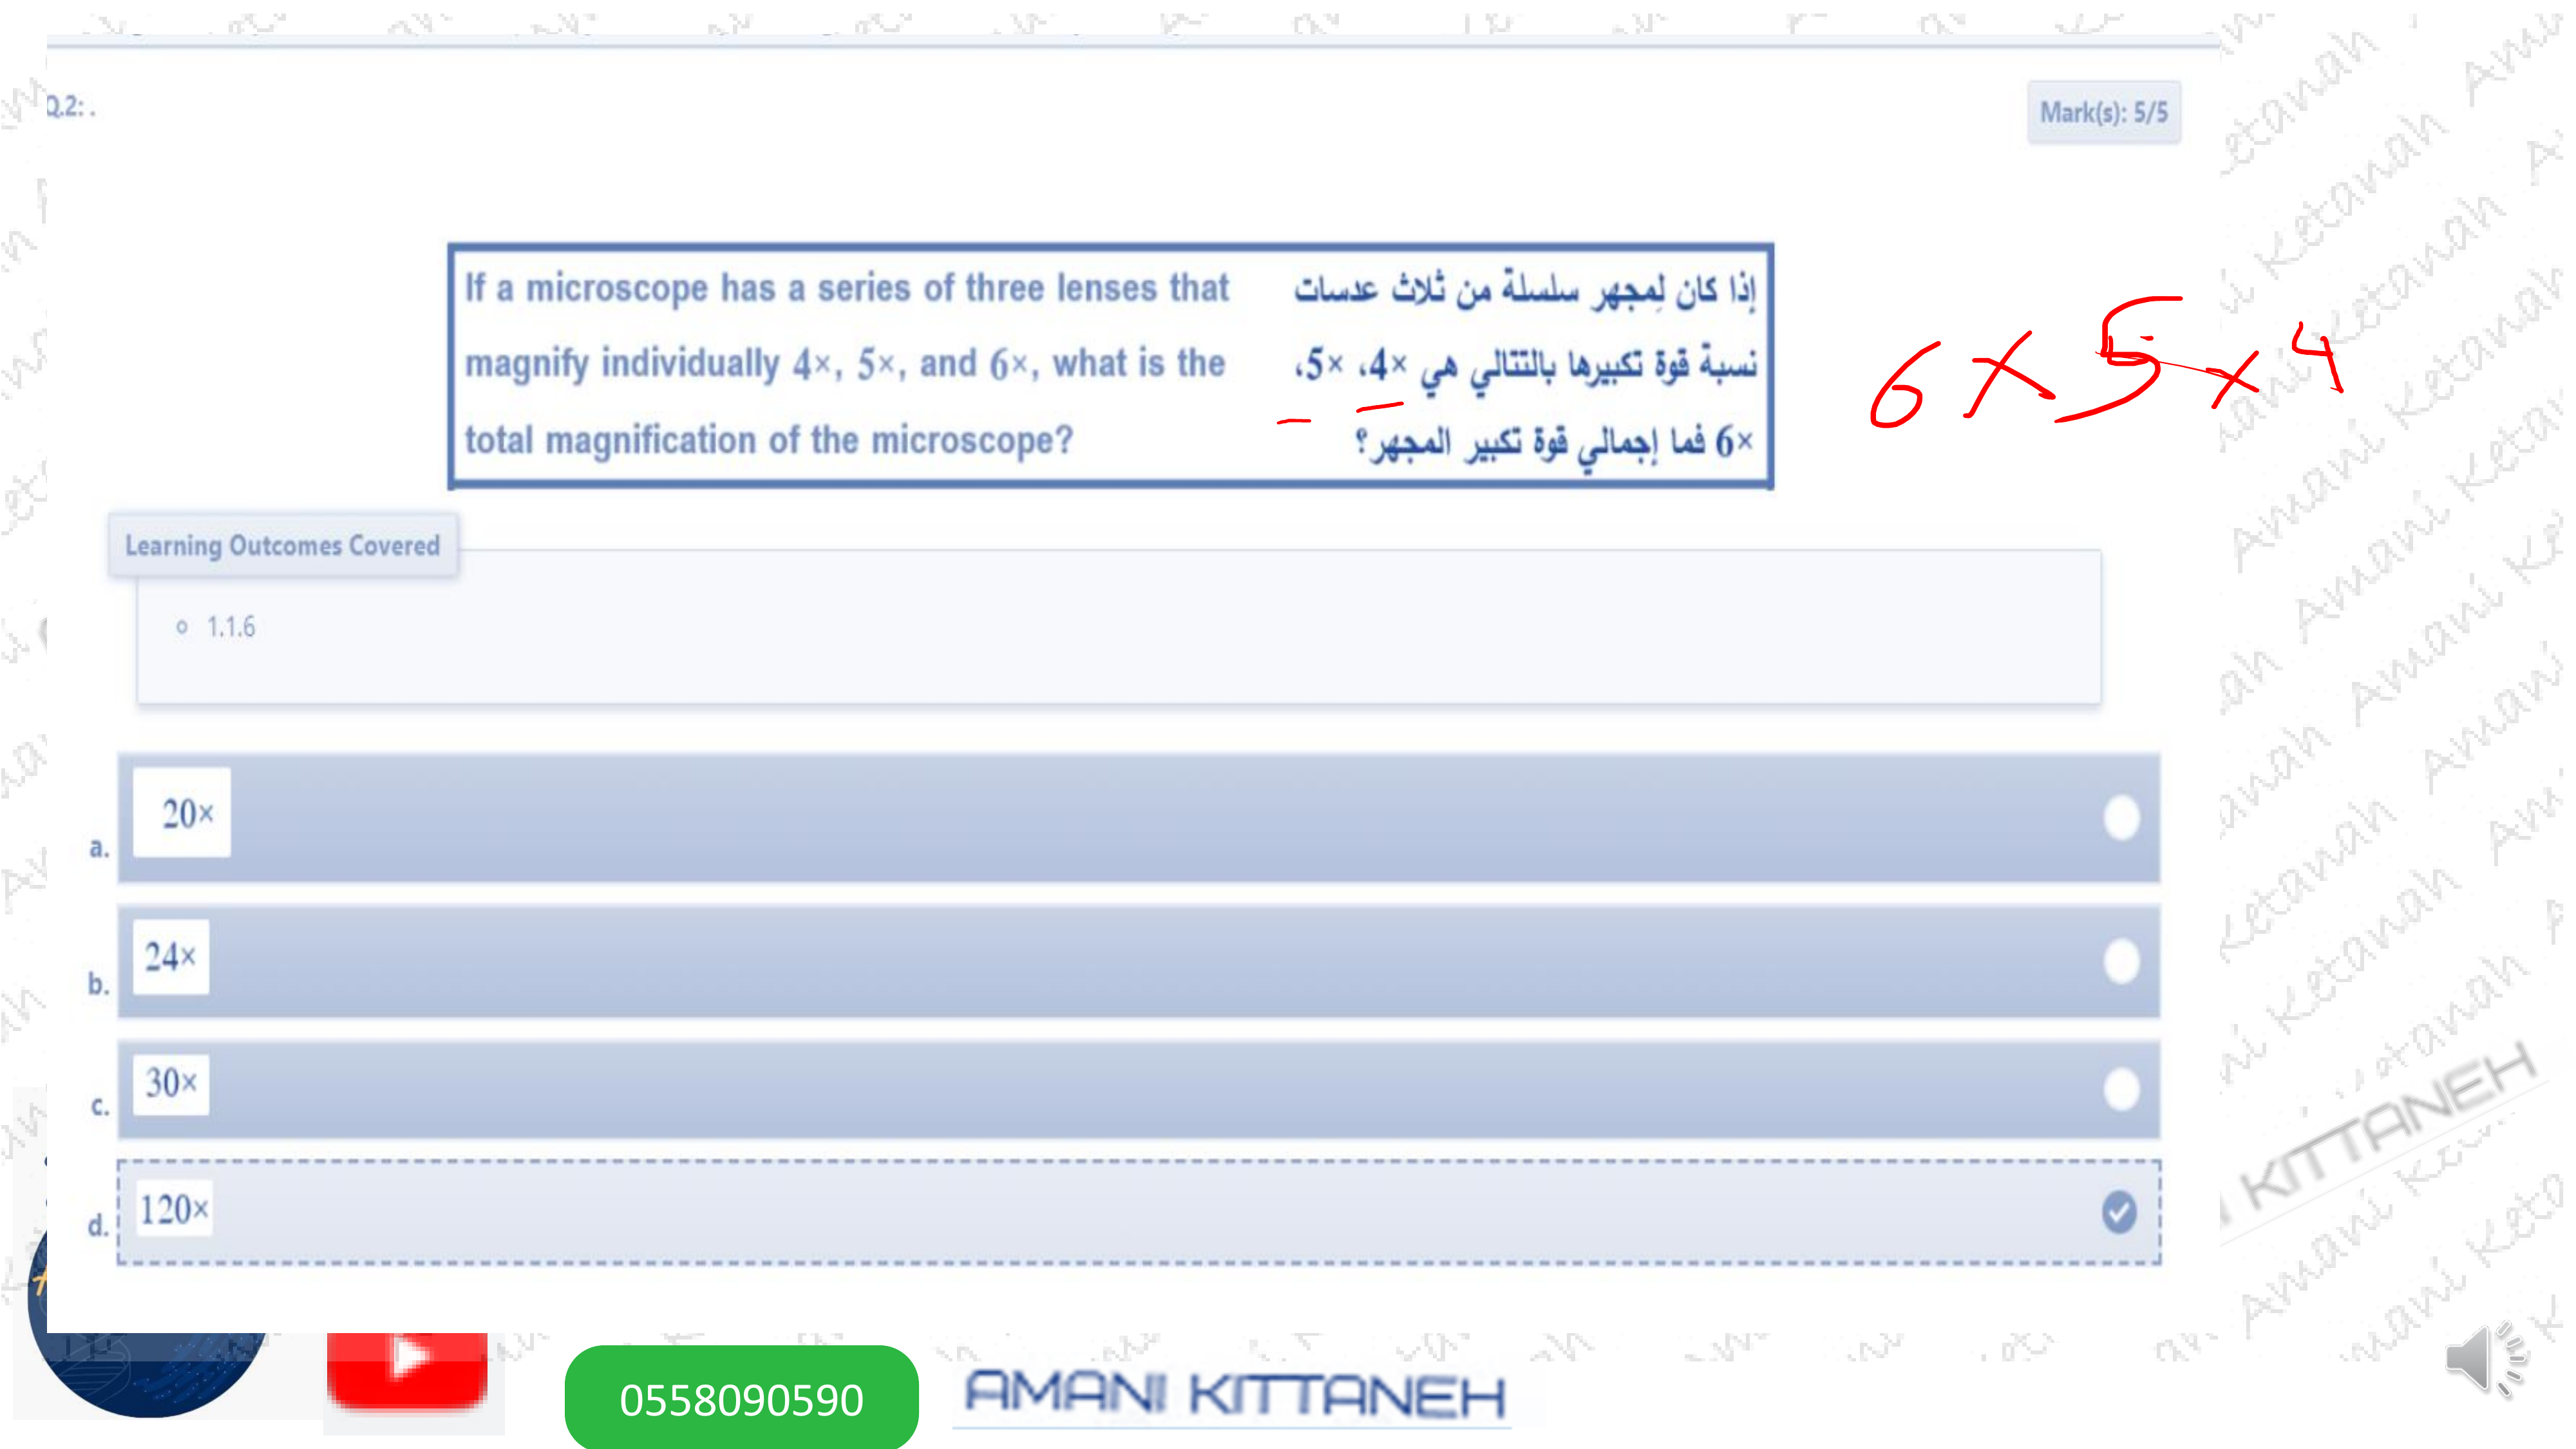 Q.2: .
Mark(s): 5/5
If a microscope has a series of three lenses that
magnify individually 4×, 5×, and 6×, what is the
total magnification of the microscope?
إذا كان لمِجهر سلسلة من ثلاث عدسات
نسبة قوة تكبيرها بالتتالي هي ×4، ×5،
×6 فما إجمالي قوة تكبير المجهر؟
6 × 5 × 4
Learning Outcomes Covered
1.1.6
a. 20×
b. 24×
c. 30×
d. 120×
KITTANEH
0558090590
AMANI KITTANEH